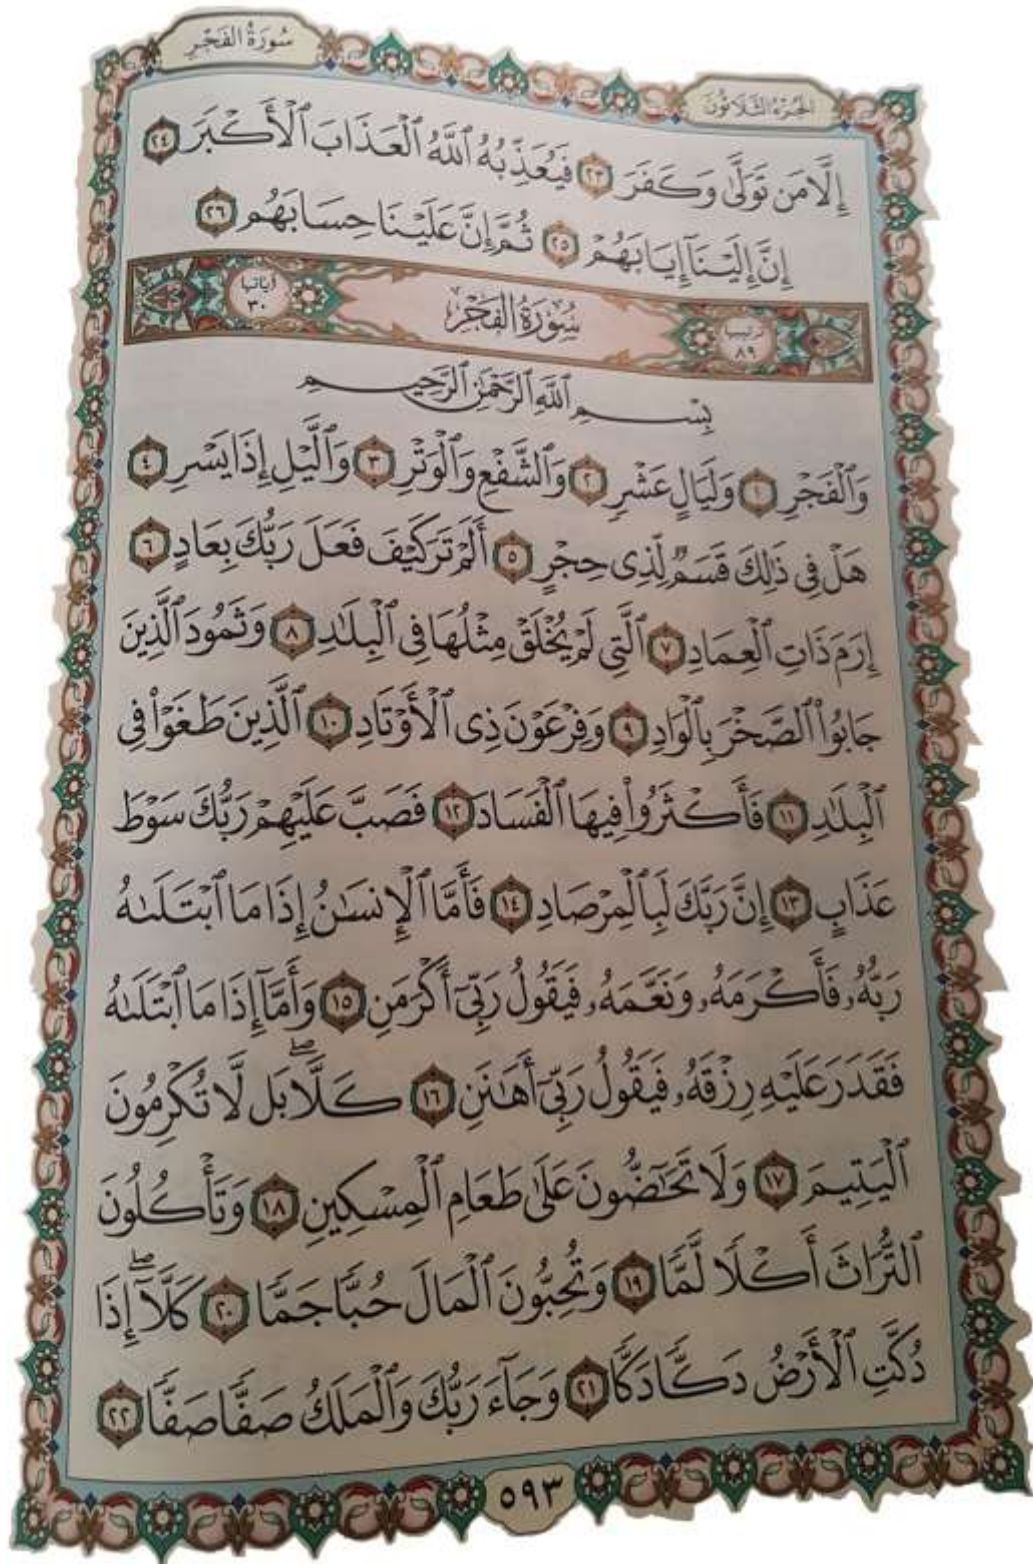 سُورَةُ الفَجْرِ
الجُزْءُ الثَّلَاثُونَ
إِلَّا مَن تَوَلَّىٰ وَكَفَرَ ٢٣ فَيُعَذِّبُهُ ٱللَّهُ ٱلْعَذَابَ ٱلْأَكْبَرَ ٢٤
إِنَّ إِلَيْنَآ إِيَابَهُمْ ٢٥ ثُمَّ إِنَّ عَلَيْنَا حِسَابَهُم ٢٦
ترتيبها ٨٩ سُورَةُ الفَجْرِ آياتها ٣٠
بِسْمِ ٱللَّهِ ٱلرَّحْمَٰنِ ٱلرَّحِيمِ
وَٱلْفَجْرِ ١ وَلَيَالٍ عَشْرٍ ٢ وَٱلشَّفْعِ وَٱلْوَتْرِ ٣ وَٱلَّيْلِ إِذَا يَسْرِ ٤
هَلْ فِى ذَٰلِكَ قَسَمٌ لِّذِى حِجْرٍ ٥ أَلَمْ تَرَ كَيْفَ فَعَلَ رَبُّكَ بِعَادٍ ٦
إِرَمَ ذَاتِ ٱلْعِمَادِ ٧ ٱلَّتِى لَمْ يُخْلَقْ مِثْلُهَا فِى ٱلْبِلَٰدِ ٨ وَثَمُودَ ٱلَّذِينَ
جَابُوا۟ ٱلصَّخْرَ بِٱلْوَادِ ٩ وَفِرْعَوْنَ ذِى ٱلْأَوْتَادِ ١٠ ٱلَّذِينَ طَغَوْا۟ فِى
ٱلْبِلَٰدِ ١١ فَأَكْثَرُوا۟ فِيهَا ٱلْفَسَادَ ١٢ فَصَبَّ عَلَيْهِمْ رَبُّكَ سَوْطَ
عَذَابٍ ١٣ إِنَّ رَبَّكَ لَبِٱلْمِرْصَادِ ١٤ فَأَمَّا ٱلْإِنسَٰنُ إِذَا مَا ٱبْتَلَىٰهُ
رَبُّهُۥ فَأَكْرَمَهُۥ وَنَعَّمَهُۥ فَيَقُولُ رَبِّىٓ أَكْرَمَنِ ١٥ وَأَمَّآ إِذَا مَا ٱبْتَلَىٰهُ
فَقَدَرَ عَلَيْهِ رِزْقَهُۥ فَيَقُولُ رَبِّىٓ أَهَٰنَنِ ١٦ كَلَّا ۖ بَل لَّا تُكْرِمُونَ
ٱلْيَتِيمَ ١٧ وَلَا تَحَٰٓضُّونَ عَلَىٰ طَعَامِ ٱلْمِسْكِينِ ١٨ وَتَأْكُلُونَ
ٱلتُّرَاثَ أَكْلًا لَّمًّا ١٩ وَتُحِبُّونَ ٱلْمَالَ حُبًّا جَمًّا ٢٠ كَلَّآ ۖ إِذَا
دُكَّتِ ٱلْأَرْضُ دَكًّا دَكًّا ٢١ وَجَآءَ رَبُّكَ وَٱلْمَلَكُ صَفًّا صَفًّا ٢٢
٥٩٣